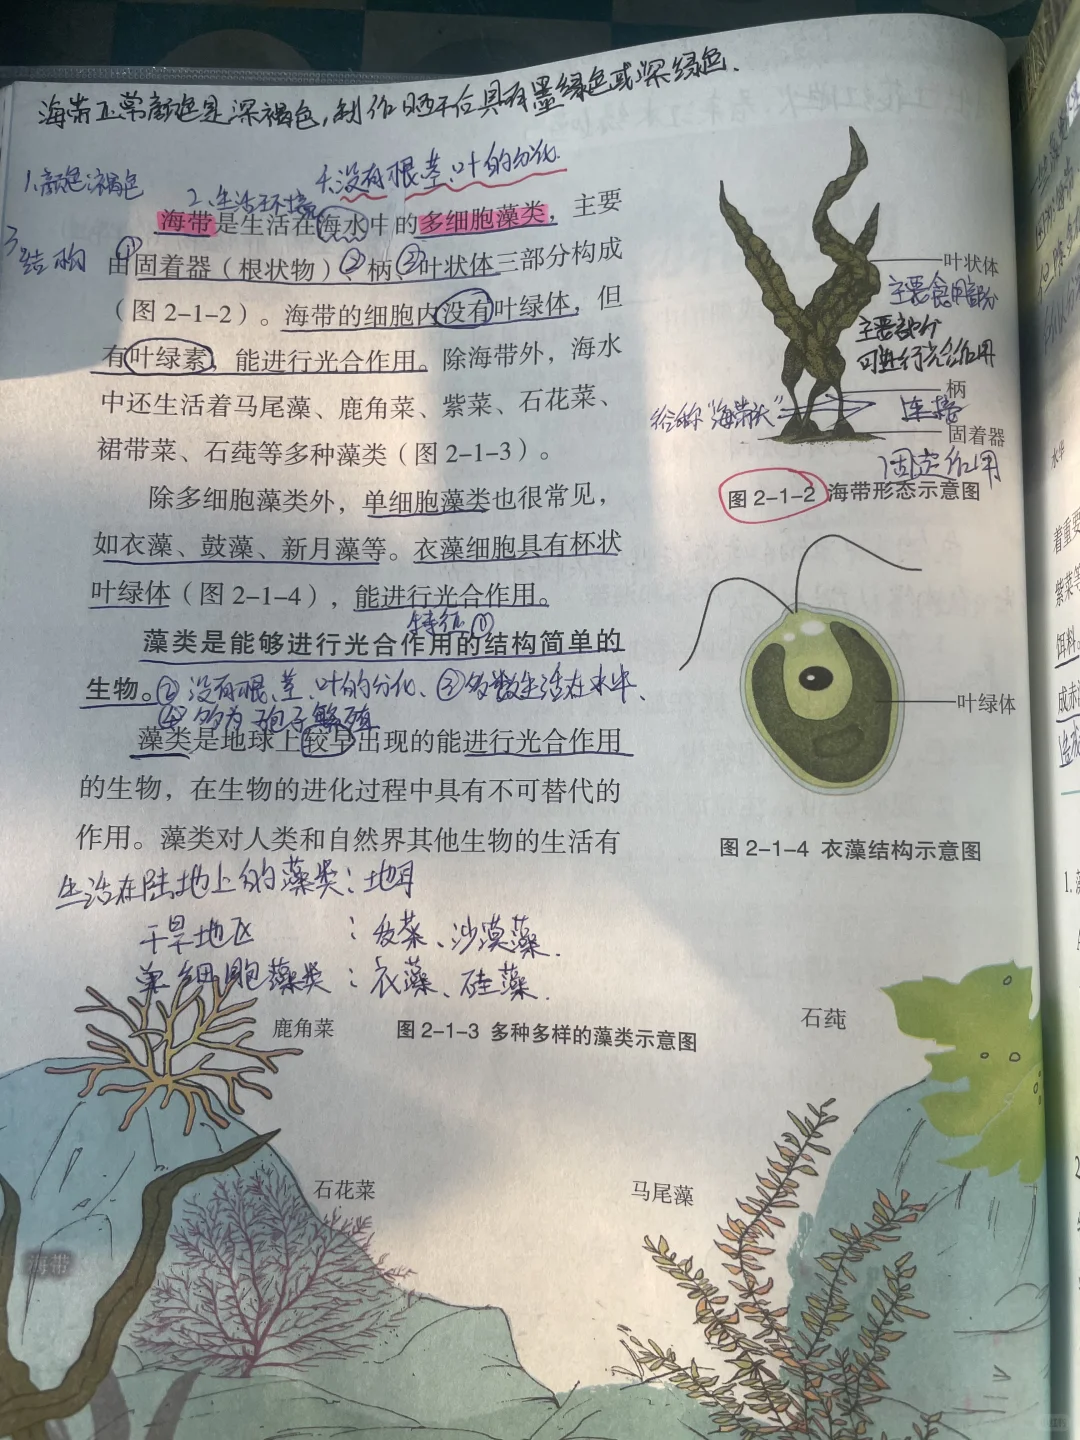 海带正常颜色是深褐色，制作晒干后具有墨绿色或深绿色.
4.没有根、茎、叶的分化.
1.颜色:褐色
2.生活环境
海带是生活在海水中的多细胞藻类，主要
3.结构
由①固着器（根状物）、②柄、③叶状体三部分构成
（图 2-1-2）。海带的细胞内没有叶绿体，但
有叶绿素，能进行光合作用。除海带外，海水
中还生活着马尾藻、鹿角菜、紫菜、石花菜、
裙带菜、石莼等多种藻类（图 2-1-3）。
除多细胞藻类外，单细胞藻类也很常见，
如衣藻、鼓藻、新月藻等。衣藻细胞具有杯状
叶绿体（图 2-1-4），能进行光合作用。
特征①
藻类是能够进行光合作用的结构简单的
生物。②没有根、茎、叶的分化、③多数生活在水中、
④多为孢子繁殖
藻类是地球上较早出现的能进行光合作用
的生物，在生物的进化过程中具有不可替代的
作用。藻类对人类和自然界其他生物的生活有
叶状体
主要食用部分
主要部分
可进行光合作用
柄
连接
俗称"海带根"
固着器
固定作用
图 2-1-2 海带形态示意图
叶绿体
图 2-1-4 衣藻结构示意图
生活在陆地上的藻类：地耳
干旱地区：发菜、沙漠藻.
单细胞藻类：衣藻、硅藻.
鹿角菜
图 2-1-3 多种多样的藻类示意图
石莼
石花菜
马尾藻
海带